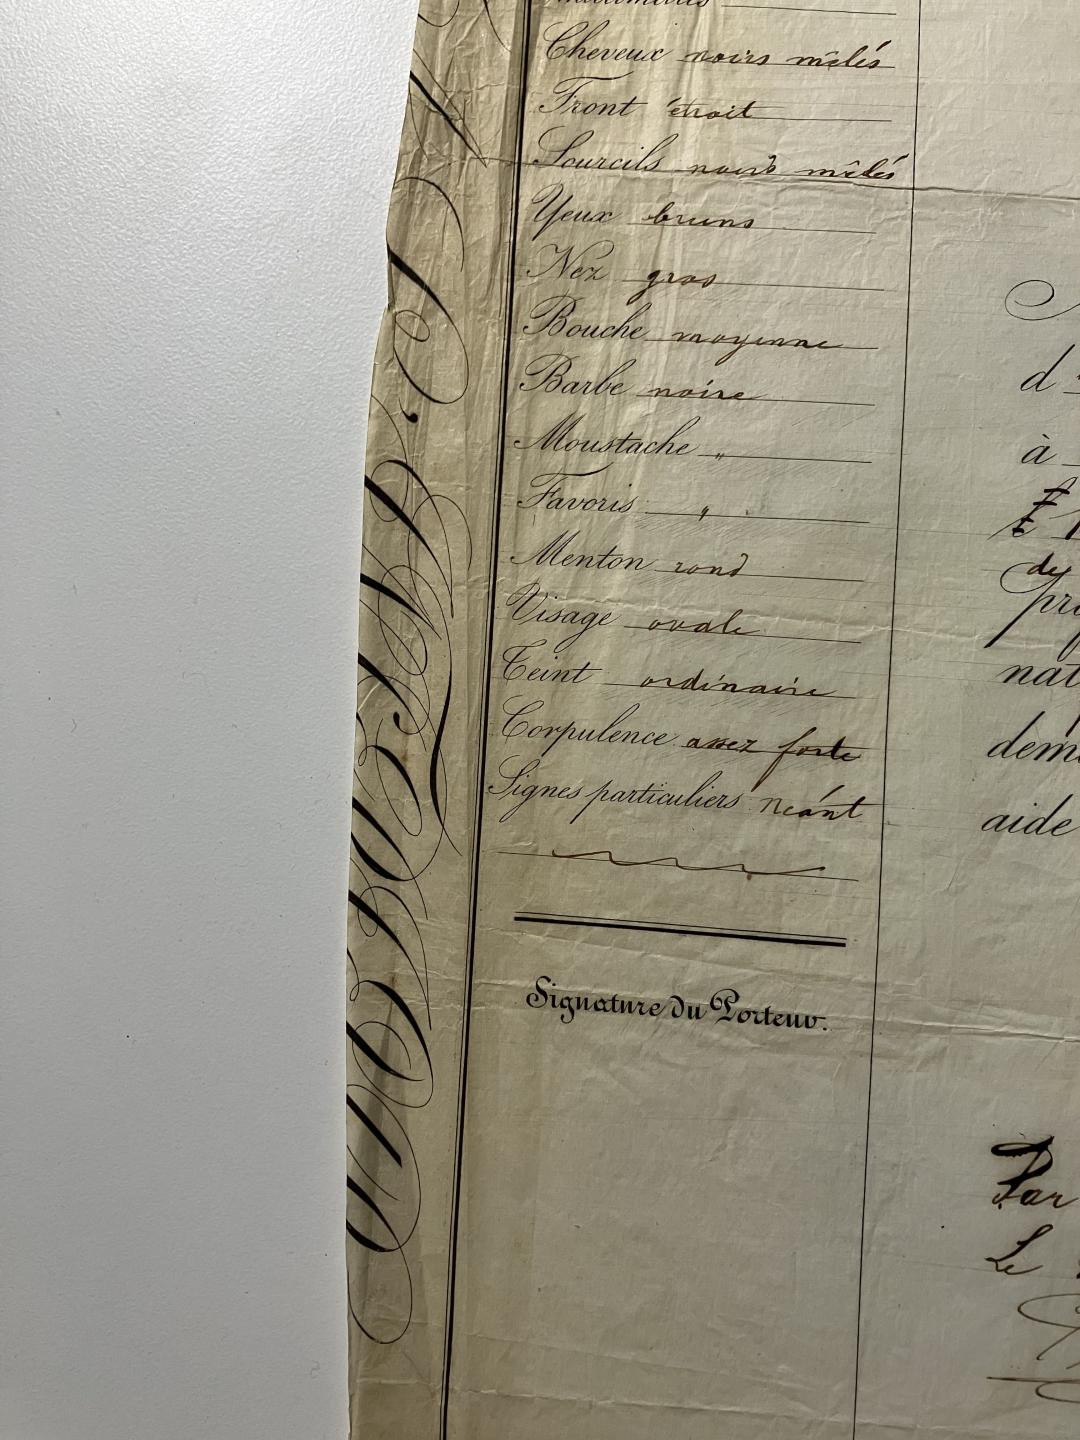 Cheveux noirs mêlés
Front étroit
Sourcils noirs mêlés
Yeux bruns
Nez gros
Bouche moyenne
Barbe noire
Moustache "
Favoris "
Menton rond
Visage ovale
Teint ordinaire
Corpulence assez forte
Signes particuliers Néant
Signature du Porteur.
d
à
de
pro
nat
dem
aide
Par
Le